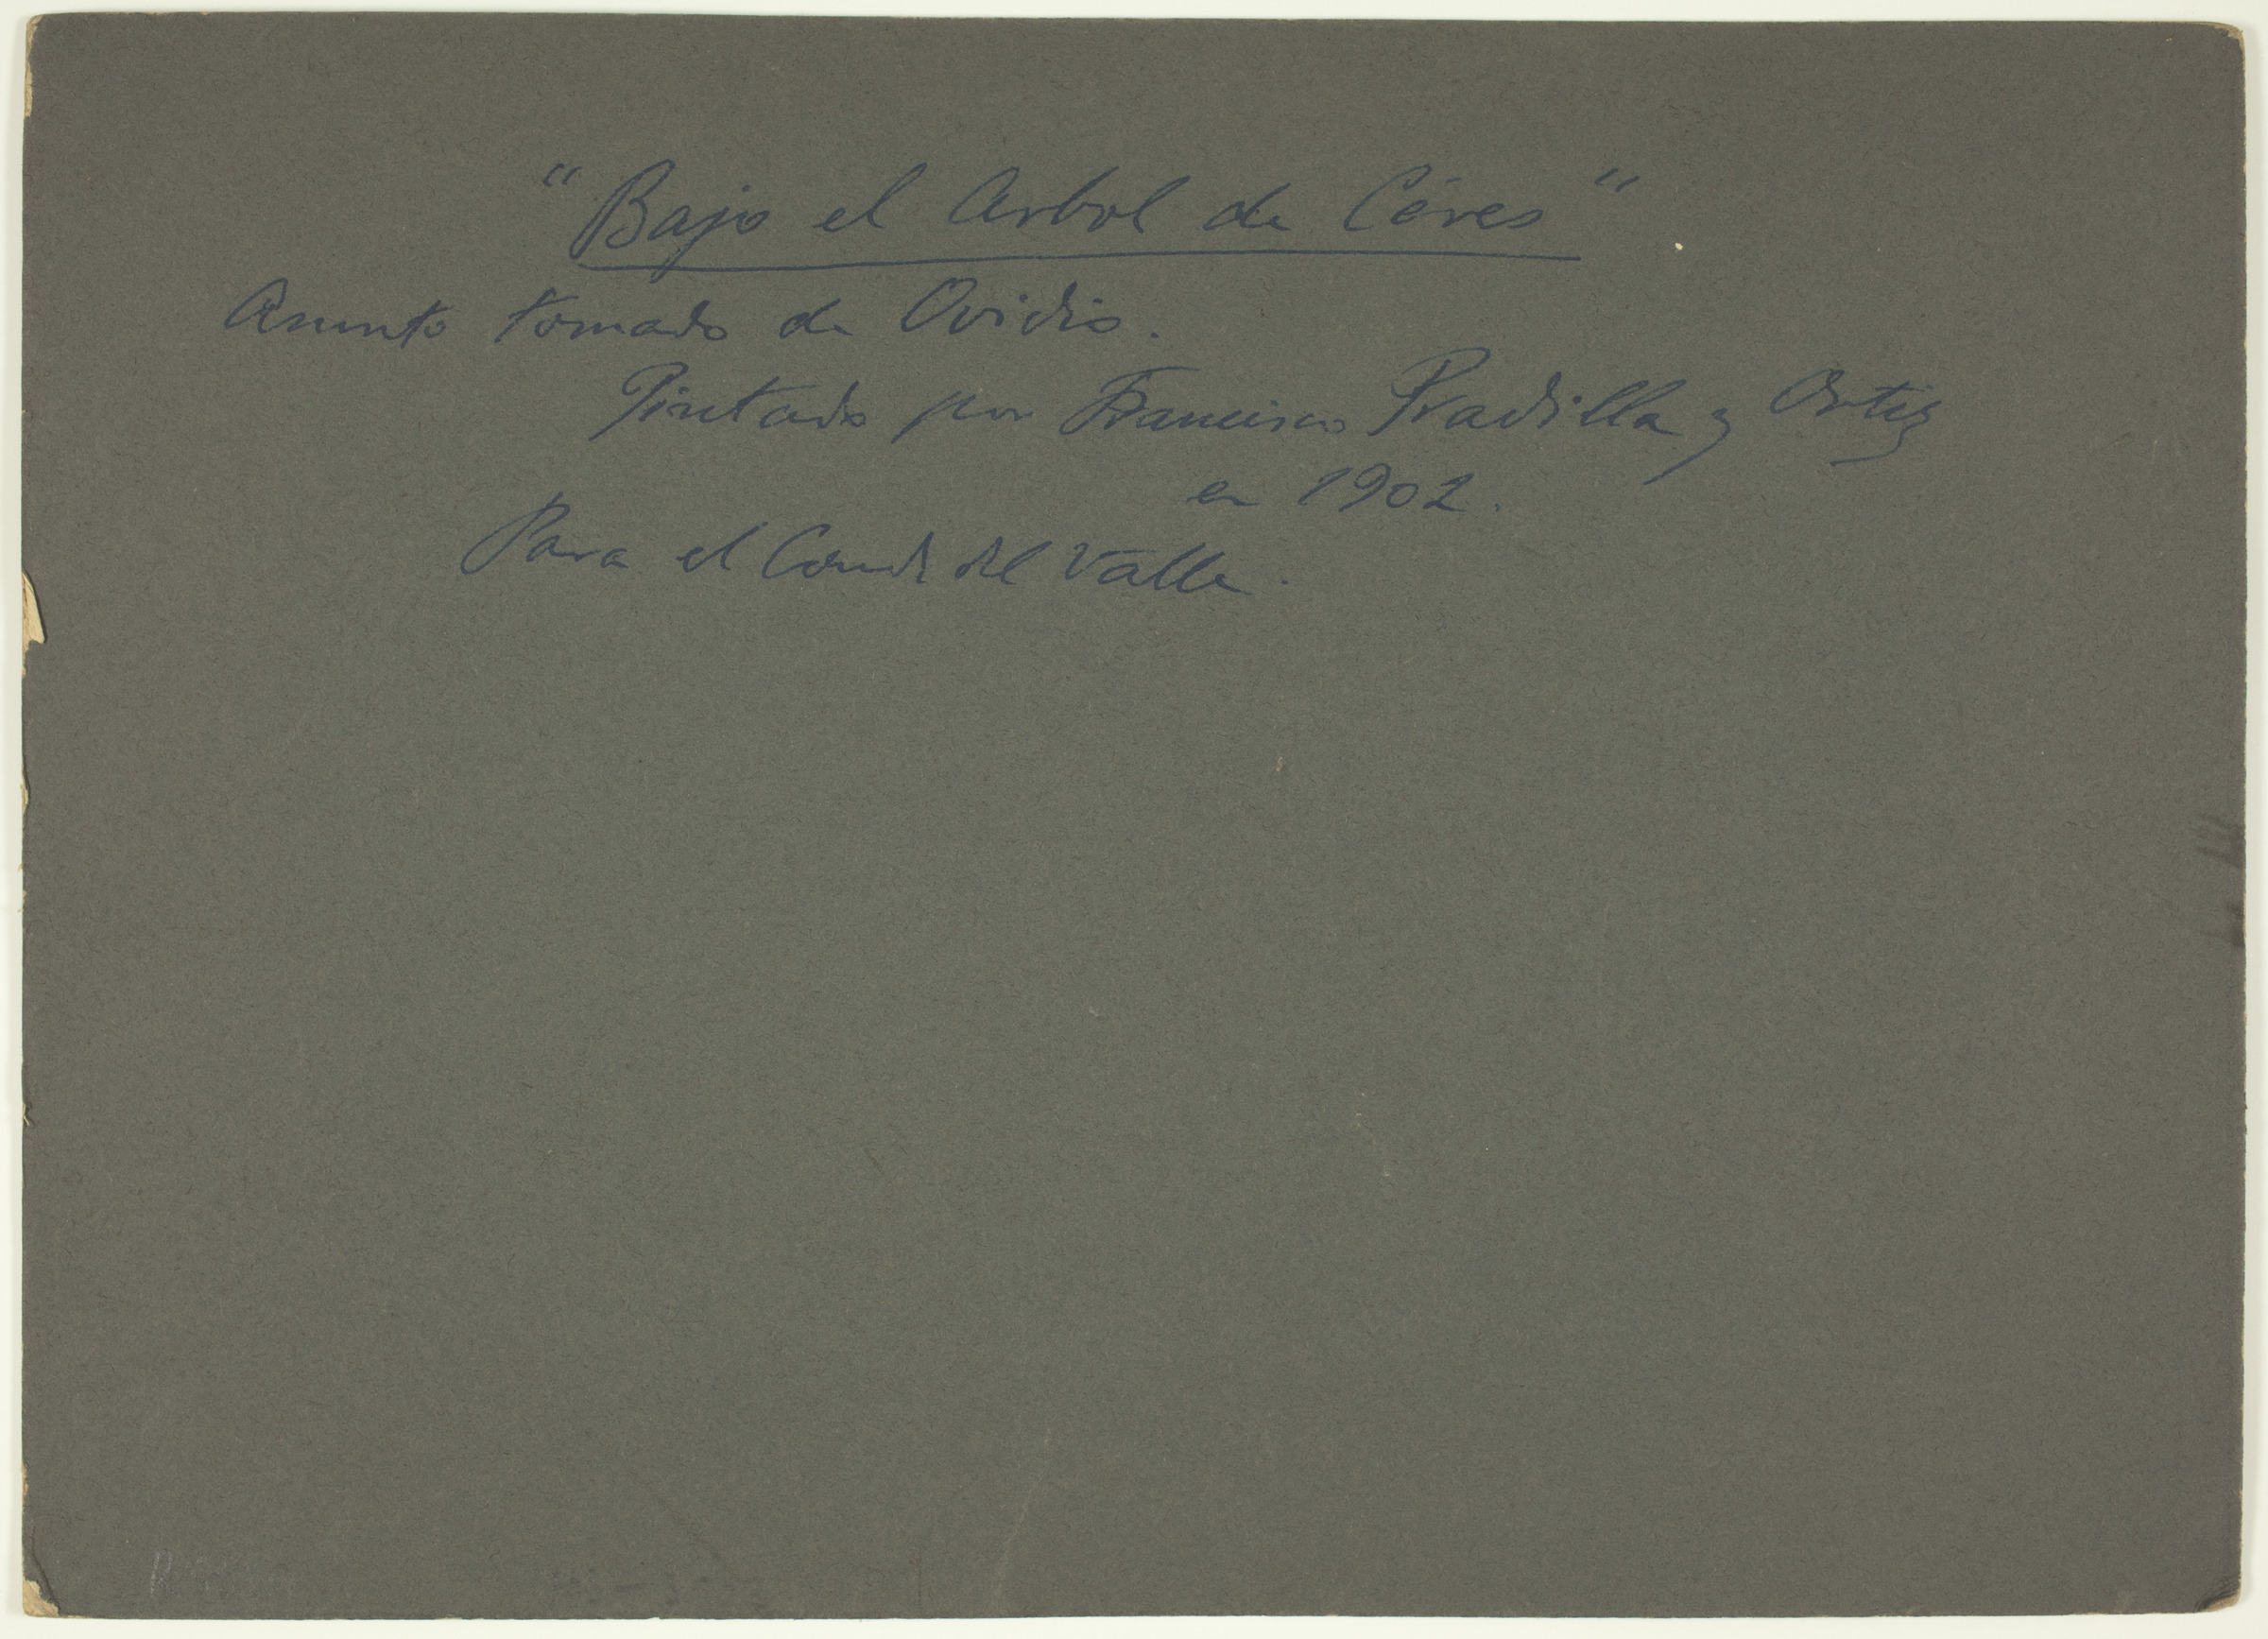 "Bajo el Arbol de Céres"
Asunto tomado de Ovidio.
Pintado por Francisco Pradilla y Ortiz
en 1902.
Para el Conde del Valle.